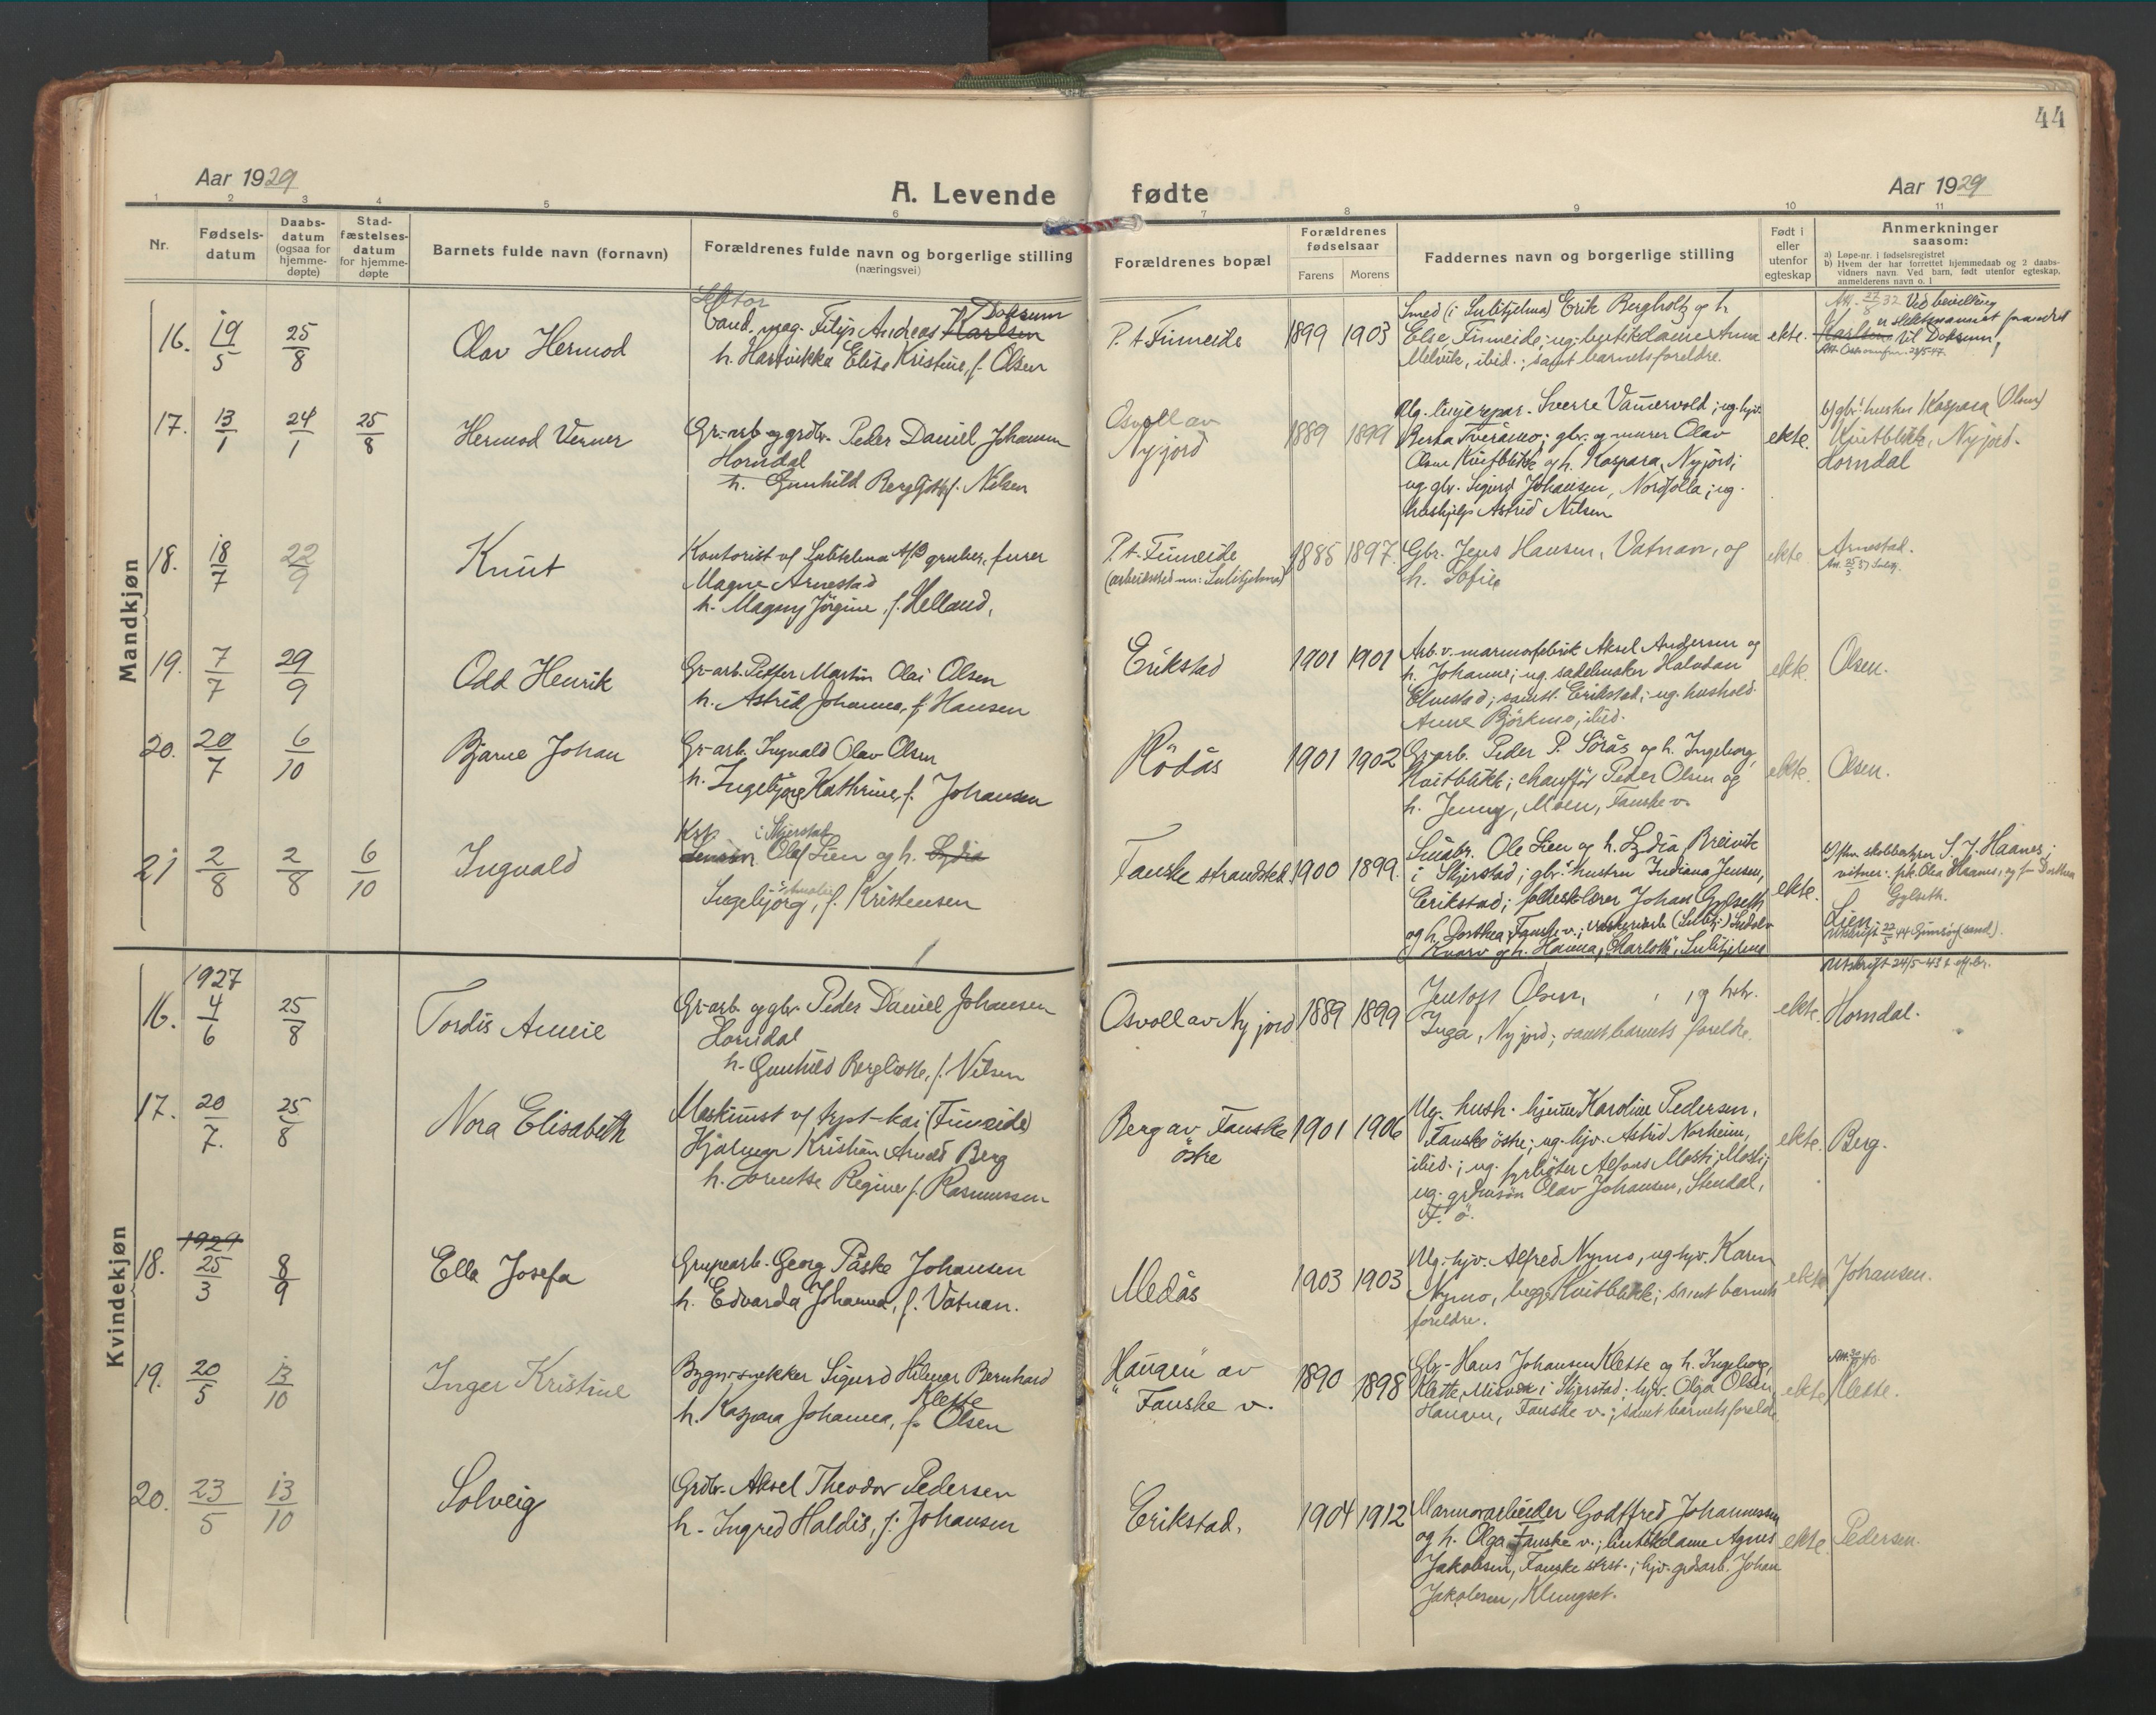 44
Aar 1929
A. Levende fødte
Aar 1929
1 2 3 4 5 6 7 8 9 10 11
Nr.
Fødsels-
datum
Daabs-
datum
(ogsaa for
hjemme-
døpte)
Stad-
fæstelses-
datum
for hjemme-
døpte
Barnets fulde navn (fornavn)
Forældrenes fulde navn og borgerlige stilling
(næringsvei)
Forældrenes bopæl
Forældrenes
fødselsaar
Farens Morens
Faddernes navn og borgerlige stilling
Født i
eller
utenfor
egteskap
Anmerkninger
saasom:
a) Løpe-nr. i fødselsregistret
b) Hvem der har forrettet hjemmedaab og 2 daabs-
vidners navn. Ved barn, født utenfor egteskap,
anmelderens navn o. l
Mandkjøn
16. 19/5 25/8 Olav Hermod
Lektor
Cand. mag. Filip Andreas Karlsen Doksum
h. Hartvikka Elise Kristine, f. Olsen
P. t Finneide 1899 1903
Smed (i Sulitjelma) Erik Bergholtz og h.
Else, Finneide; ug. butikdame Anna
Melvik, ibid.; samt barnets foreldre.
ekte.
Att. 27/8 32 Ved bevilling
er slektsnavnet forandret
Karlsen til Doksum,
17. 13/1 24/1 25/8 Hermod Verner
Gr.-arb. og grdbr. Peder Daniel Johansen
Horndal
h. Gunhild Bergljott f. Nilsen
Osvoll av
Nyjord
1889 1899
Sverre Vannervold; ug. hjv.
Berta Tveråmo; gbr. og murer Olav
Olsen Kvitblikk og h. Kaspara, Nyjord;
ug. gbr. Sigurd Johansen, Nordfolla; ug.
hushjelp Astrid Nilsen
ekte.
b) gbr. hustru Kaspara Olsen
Kvitblikk, Nyjord.
Horndal
18. 18/7 22/9 Knut
Kontorist v/ Sulitelma A/B gruber, furer
Magne Arnestad
h. Magny Jörgine, f. Helland,
P. t. Finneide
(arbeidssted nu: Sulitjelma)
1885 1897.
Gbr. Jens Hansen, Vatnan, og
h. Sofie
ekte
Arnestad.
19. 7/7 29/9 Odd Henrik
Gr-arb. Petter Martin Olai Olsen
h. Astrid Johanna, f. Hansen
Erikstad
1901 1901
Arb. v. marmorfabrik Aksel Andersen og
h. Johanne; ug. sadelmaker Halvdan
Elvestad; samt. Erikstad; ug. hushold.
Anne Björkmo, ibid.
ekte.
Olsen.
20. 20/7 6/10 Bjarne Johan
Gr-arb. Ingvald Olav Olsen
h. Ingebjørg Kathrine, f. Johansen
Rödås
1901 1902
Gr-arb. Peder P. Sörås og h. Ingeborg,
Kvitblikk; chaufför Peder Olsen og
h. Jenny, Moen, Fauske v.
ekte.
Olsen.
21 2/8 2/8 6/10 Ingvald
i Skjerstad
Olaf Lien og h. Lydia
Ingebjörg, f. Kristensen
Fauske strandsted. 1900 1899.
Småbr. Ole Lien og h. Lydia, Breivik
i Skjerstad; gbr. hustru Indiana Jensen,
Erikstad; folkeskolelærer Johan Gylseth
og h. Dorthea, Fauske v.;
Kvarv og h. Hanna, Charlotte, Sulitjelma
ekte.
b) fhv. skolebestyrer S. J. Haanes;
vitner: frk. Olea Haanes, og fru Dorthea
Gylseth.
Lien
Utskrift 24/5-43 t. off. br.
Kvindekjøn
1927
16. 4/6 25/8 Tordis Annie
Gr-arb. og gbr. Peder Daniel Johansen
Horndal
h. Gunhild Bergliotte, f. Nilsen
Osvoll av Nyjord 1889 1899
Jentoft Olsen, og hstr.
Inga, Nyjord; samt barnets foreldre.
ekte.
Horndal.
17. 20/7. 25/8 Nora Elisabeth
Maskinist v/ (Finneide)
Hjalmar Kristian Arnold Berg
h. Lorentse Regine f. Rasmussen
Berg av Fauske
östre
1901 1906
Ug. hush. hjemme Karoline Pedersen,
Fauske östre; ug. hjv. Astrid Norheim,
ibid.; ug. fyrböter Alfons Mosti, Mosti;
ug. grdmsön Olav Johansen, Stendal,
F. ö.
ekte.
Berg.
1929
18. 25/3 8/9 Ella Josefa
Grupearb. Georg Påske Johansen
h. Edvarda Johanna, f. Vatnan.
Medås
1903 1903
Ug. hjv. Alfred Nymo, ug hjv. Karen
Nymo, begge Kvitblikk; samt barnets
foreldre.
ekte
Johansen.
19. 20/5 13/10 Inger Kristine
Bygn.snekker Sigurd Hilmar Bernhard
Klette
h. Kaspara Johanna, f. Olsen
"Haugen" av
Fauske v.
1890 1898
Gbr. Hans Johansen Klette og h. Ingeborg,
Klette, Misvær i Skjerstad; hjv. Olga Olsen,
Haugen, Fauske v.; samt barnets foreldre
ekte
Klette.
20. 23/5 13/10 Solveig
Grdbr. Aksel Theodor Pedersen
h. Ingrid Haldis, f. Johansen
Erikstad.
1904 1912
Marmorarbeider Godtfred Johannessen
og h. Olga Fauske v.; butikdame Agnes
Jakobsen, Fauske strst.; hjv. grdsarb. Johan
Jakobsen, Klungset.
ekte.
Pedersen.